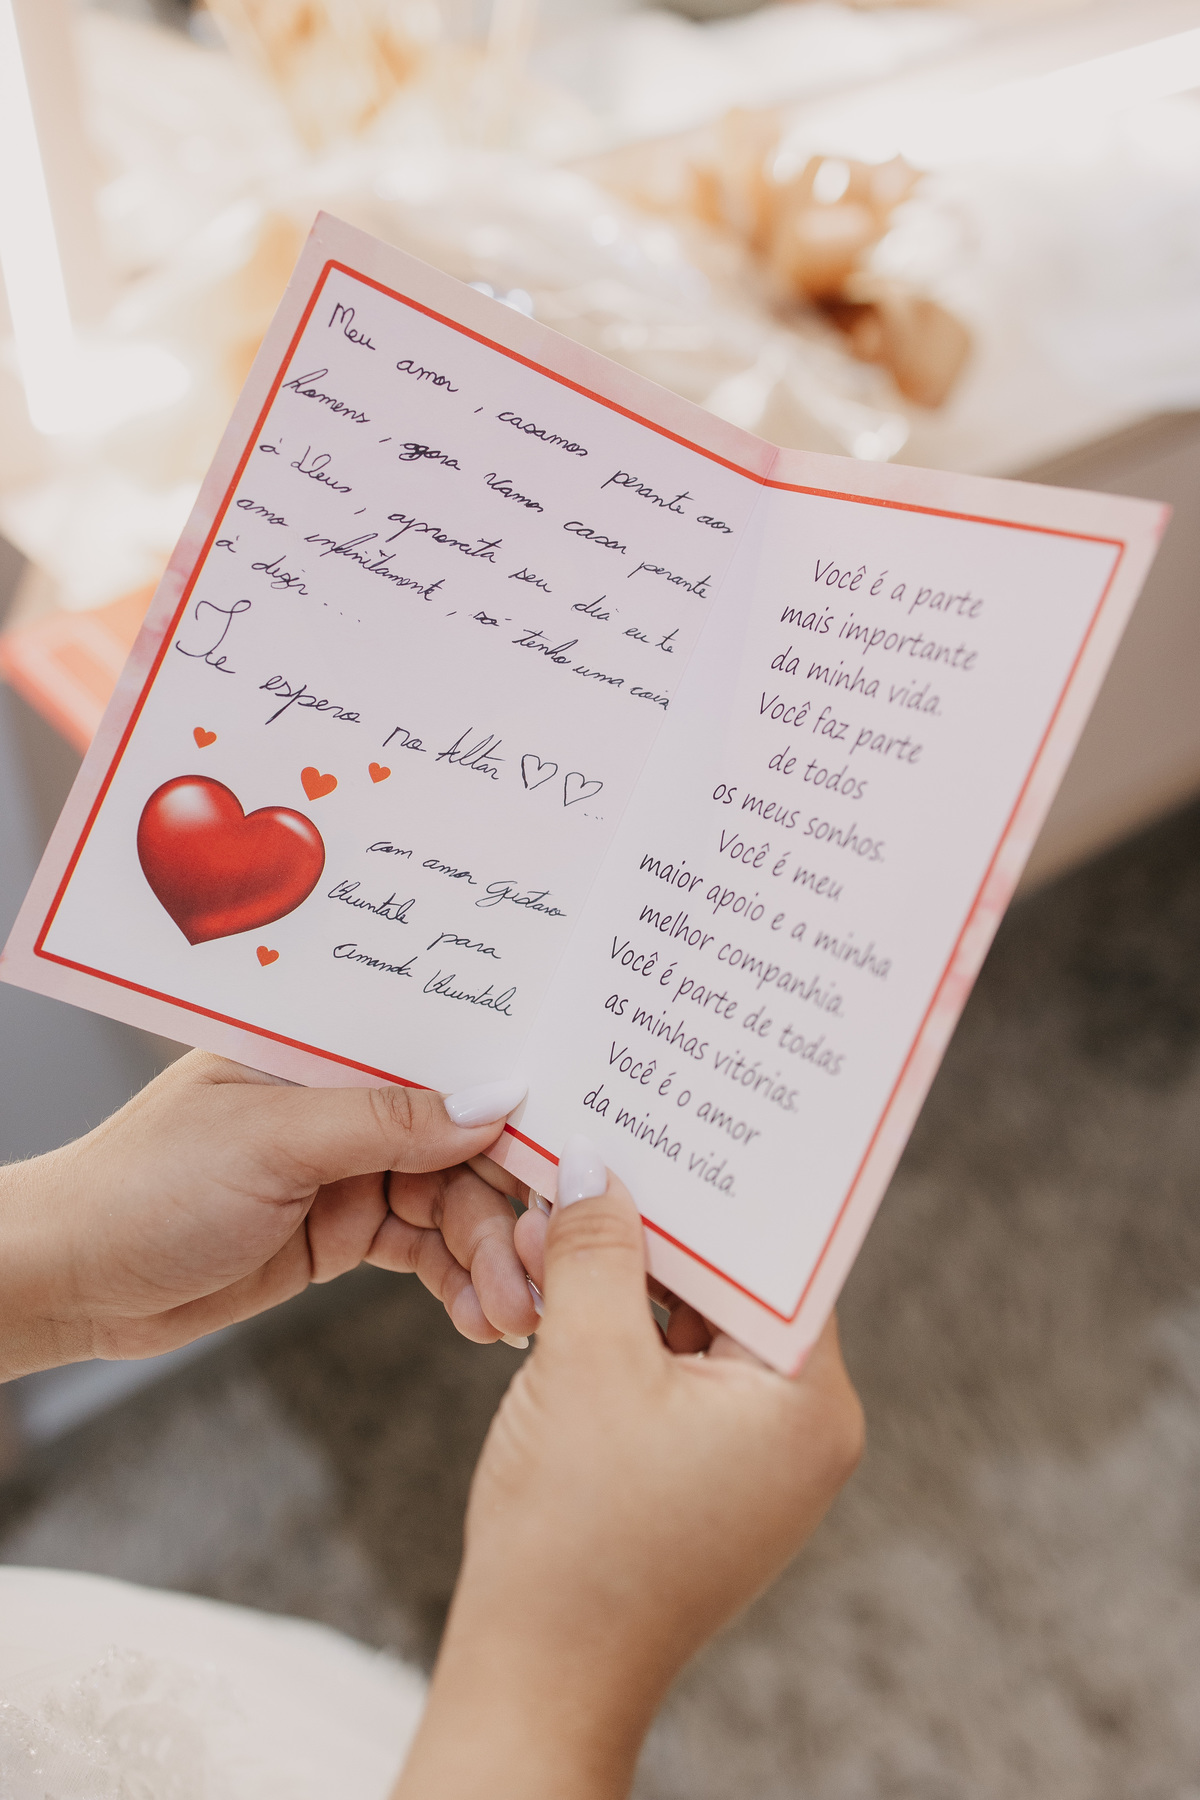 Meu amor, casamos perante aos
homens, agora vamos casar perante
à Deus, aproveita seu dia eu te
amo infinitamente, só tenho uma coisa
à dizer....
Te espero no Altar ♡♡...
com amor Gustavo
para
Amanda
Você é a parte
mais importante
da minha vida.
Você faz parte
de todos
os meus sonhos.
Você é meu
maior apoio e a minha
melhor companhia.
Você é parte de todas
as minhas vitórias.
Você é o amor
da minha vida.